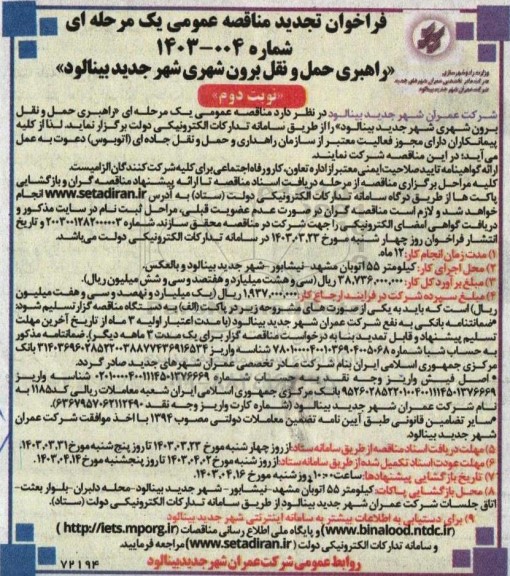 فراخوان تجدید مناقصه عمومی یک مرحله ای
شماره ۰۰۴-۱۴۰۳
«راهبری حمل و نقل برون شهری شهر جدید بینالود»
وزارت راه و شهرسازی
«نوبت دوم»
شرکت عمران شهر جدید بینالود در نظر دارد مناقصه عمومی یک مرحله ای «راهبری حمل و نقل
برون شهری شهر جدید بینالود» را از طریق سامانه تدارکات الکترونیکی دولت برگزار نماید. لذا از کلیه
پیمانکاران دارای مجوز فعالیت معتبر از سازمان راهداری و حمل و نقل جاده ای (اتوبوس) دعوت به عمل
می آید؛ در این مناقصه شرکت نمایند.
ارائه گواهینامه تایید صلاحیت ایمنی معتبر از اداره تعاون، کار و رفاه اجتماعی برای کلیه شرکت کنندگان الزامیست.
کلیه مراحل برگزاری مناقصه از مرحله دریافت اسناد مناقصه تا ارائه پیشنهاد مناقصه گران و بازگشایی
پاکت ها از طریق درگاه سامانه تدارکات الکترونیکی دولت (ستاد) به آدرس www.setadiran.ir انجام
خواهد شد و لازم است مناقصه گران در صورت عدم عضویت قبلی، مراحل ثبت نام در سایت مذکور و
دریافت گواهی امضای الکترونیکی را جهت شرکت در مناقصه محقق سازند. شماره ۲۰۰۳۰۰۱۲۸۲۰۰۰۰۰۳ و تاریخ
انتشار فراخوان روز چهار شنبه مورخ ۱۴۰۳.۰۳.۲۳ در سامانه تدارکات الکترونیکی دولت می‌باشد.
۱) مدت زمان انجام کار: ۱۲ ماه.
۲) محل اجرای کار: کیلومتر ۵۵ اتوبان مشهد- نیشابور- شهر جدید بینالود و بالعکس.
۳) مبلغ برآورد کل کار: ۳۸,۷۳۶,۰۰۰,۰۰۰ ریال (سی و هشت میلیارد و هفتصد و سی و شش میلیون ریال).
۴) مبلغ سپرده شرکت در فرایند ارجاع کار: ۱,۹۳۷,۰۰۰,۰۰۰ ریال (یک میلیارد و نهصد و سی و هفت میلیون
ریال) است که باید به یکی از صورت های مشروحه زیر در پاکت (الف) به دستگاه مناقصه گزار تسلیم شود:
*ضمانتنامه بانکی به نفع شرکت عمران شهر جدید بینالود (با مدت اعتبار اولیه ۳ ماه از تاریخ آخرین مهلت
تسلیم پیشنهاد و قابل تمدید بنا به درخواست مناقصه گزار برای یک مدت ۳ ماهه دیگر).
مرکزی جمهوری اسلامی ایران بنام شرکت مادر تخصصی عمران شهرهای جدید صادر گردد.
* اصل فیش واریز وجه نقد
بانک مرکزی جمهوری اسلامی ایران شعبه معاملات ریالی کد ۱۱۸۵ به
نام شرکت عمران شهر جدید بینالود (شماره کارت واریز وجه نقد
*سایر تضامین قانونی طبق آیین نامه تضمین معاملات دولتی مصوب ۱۳۹۴ با اخذ موافقت شرکت عمران
شهر جدید بینالود
۵) مهلت دریافت اسناد مناقصه از طریق سامانه ستاد: از روز چهار شنبه مورخ ۱۴۰۳.۰۳.۲۳ تا روز پنج شنبه مورخ ۱۴۰۳.۰۳.۳۱.
۶) مهلت عودت اسناد تکمیل شده از طریق سامانه ستاد: از روز شنبه مورخ ۱۴۰۳.۰۴.۰۲ تا روز پنجشنبه مورخ ۱۴۰۳.۰۴.۱۴.
۷) تاریخ بازگشایی پیشنهادها: ساعت ۱۰:۰۰ روز شنبه مورخ ۱۴۰۳.۰۴.۱۶
۸) محل بازگشایی پاکات: کیلومتر ۵۵ اتوبان مشهد- نیشابور- شهر جدید بینالود- محله دلبران- بلوار بعثت-
اتاق جلسات شرکت عمران شهر جدید بینالود از طریق سامانه تدارکات الکترونیکی دولت (ستاد).
۹) برای دستیابی به اطلاعات بیشتر به سامانه اینترنتی شهر جدید بینالود
(www.binalood.ntdc.ir) و پایگاه ملی اطلاع رسانی مناقصات (http://iets.mporg.ir)
و سامانه تدارکات الکترونیکی دولت (www.setadiran.ir) مراجعه فرمایید.
روابط عمومی شرکت عمران شهر جدید بینالود
۷۲۱۹۴